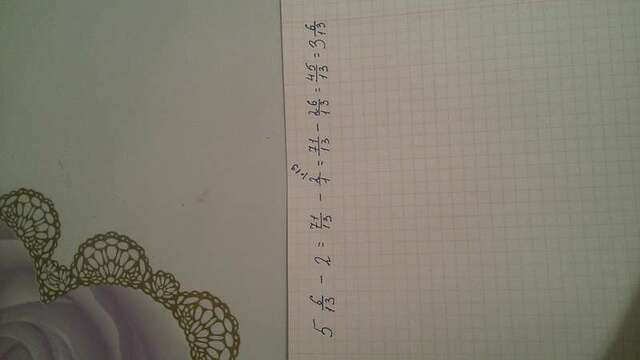 5 6/13 - 2 = 71/13 - 2/1 = 71/13 - 26/13 = 45/13 = 3 6/13